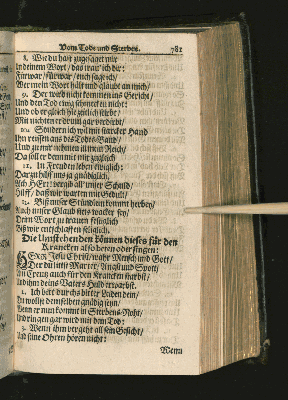 Vom Tode und Sterben. 781
8. Wie du hast zugesaget mir
In deinem Wort / das trau' ich dir:
Fürwar / fürwar / euch sage ich /
Wer mein Wort hält und gläubt an mich /
9. Der wird nicht kommen ins Gericht /
Und den Tod ewig schmecken nicht:
Und ob er gleich hie zeitlich stirbt /
Mit nichten er drum gar verdirbt /
10. Sondern ich wil mit starcker Hand
Ihn reissen aus des Todes-Band /
Und zu mir nehmen in mein Reich /
Da sol er denn mit mir zugleich
11. In Freuden leben ewiglich:
Darzu hilff uns ja gnädiglich.
Ach HErr / vergib all' unser Schuld /
Hilff / daß wir warten mit Gedult /
12. Biß unser Stündlein kommt herbey /
Auch unser Glaub stets wacker sey /
Dein'm Wort zu trauen festiglich
Biß wir entschlaffen seliglich.
Die Umstehenden können dieses für den
Krancken also beten oder singen:
HErr Jesu Christ / wahr Mensch und Gott /
Der du litt'st Marter / Angst und Spott /
Am Creutz auch für den Krancken starbst /
Und ihm deins Vaters Huld erwarbst.
2. Ich bitt durchs bitter Leiden dein /
Du wollst demselben gnädig seyn /
Wenn er nun kommt in Sterbens-Noht /
Und ringen gar wird mit dem Tod:
3. Wenn ihm vergeht all sein Gesicht /
Und seine Ohren hören nicht:
Wenn